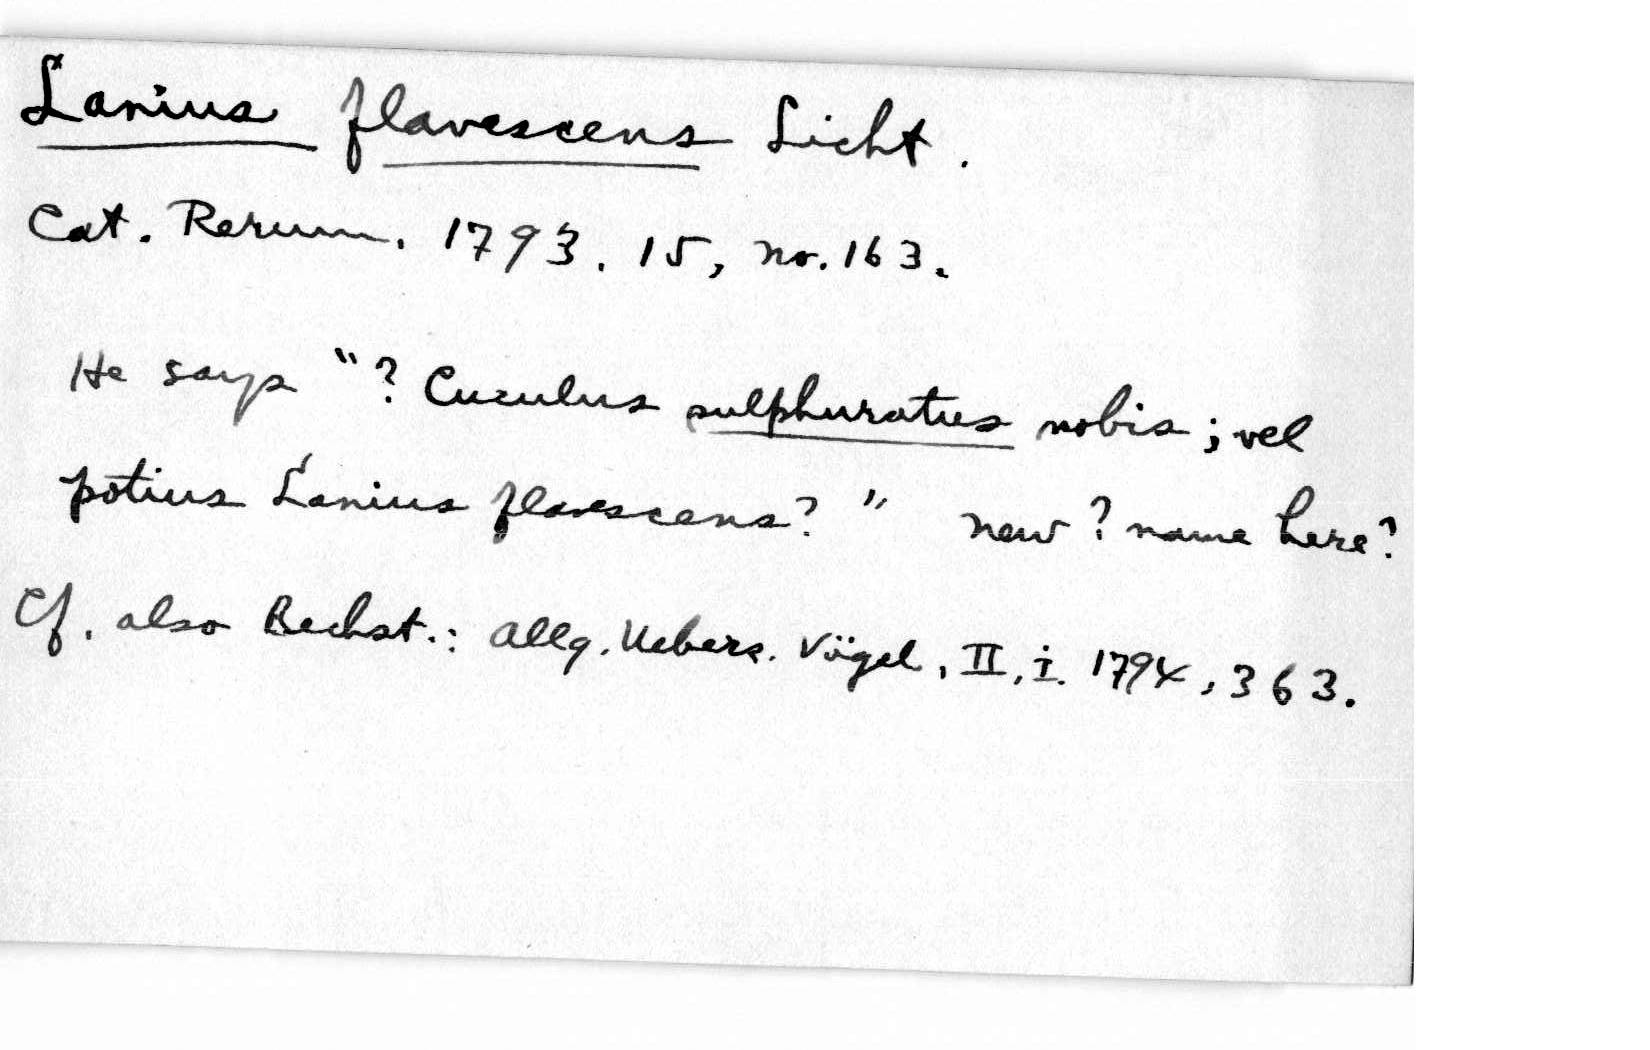 Lanius flavescens Licht.
Cat. Rerum. 1793. 15, no. 163.
He says "? Cuculus sulphuratus nobis; vel
potius Lanius flavescens?" new? name here?
Cf. also Bechst.: Allg. Uebers. Vögel, II, i. 1794, 363.